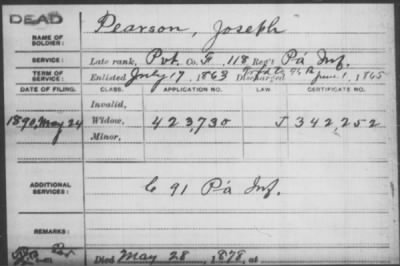 DEAD
NAME OF SOLDIER: Pearson, Joseph
SERVICE: Late rank, Pvt. Co. F, 118 Reg't Pa Inf.
TERM OF SERVICE: Enlisted July 17, 1863 Discharged June 1, 1865
DATE OF FILING. CLASS. APPLICATION NO. LAW CERTIFICATE NO.
Invalid,
1890, May 24 Widow, 423,730 J 342,252
Minor,
ADDITIONAL SERVICES: C 91 Pa Inf.
REMARKS:
Died May 28, 1878, at